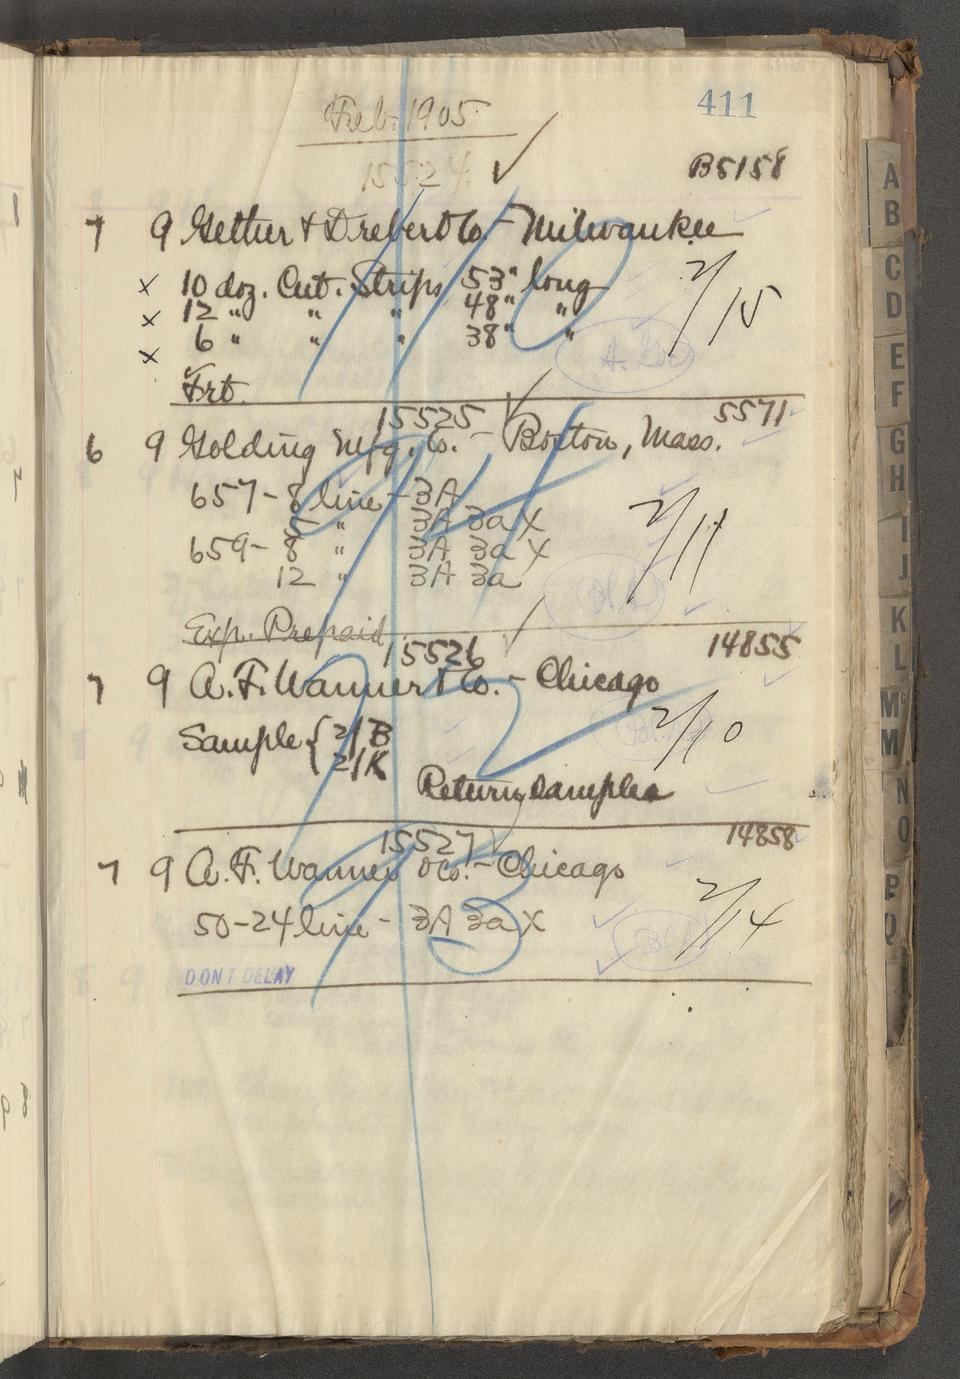 411
Feb. 1905
15524 B5158
7 9 Gether & Drebert Co. - Milwaukee
x 10 doz. Cut. Strips 53" long 2/15
x 12 " " " 48" "
x 6 " " " 38" "
Frt.
15525 5571
6 9 Golding Mfg. Co. - Boston, Mass.
657 - 8 line - 3A
" 3A 3a X 2/11
659 - 8 " 3A 3a X
12 " 3A 3a
Exp. Prepaid
15526 14855
7 9 A. F. Wanner & Co. - Chicago
Sample { 2/B 2/10
2/K
Return samples
15527 14858
7 9 A. F. Wanner & Co. - Chicago
50 - 24 line - 3A 3a X 2/14
DON'T DELAY
A
B
C
D
E
F
G
H
I
J
K
L
Mc
M
N
O
P
Q